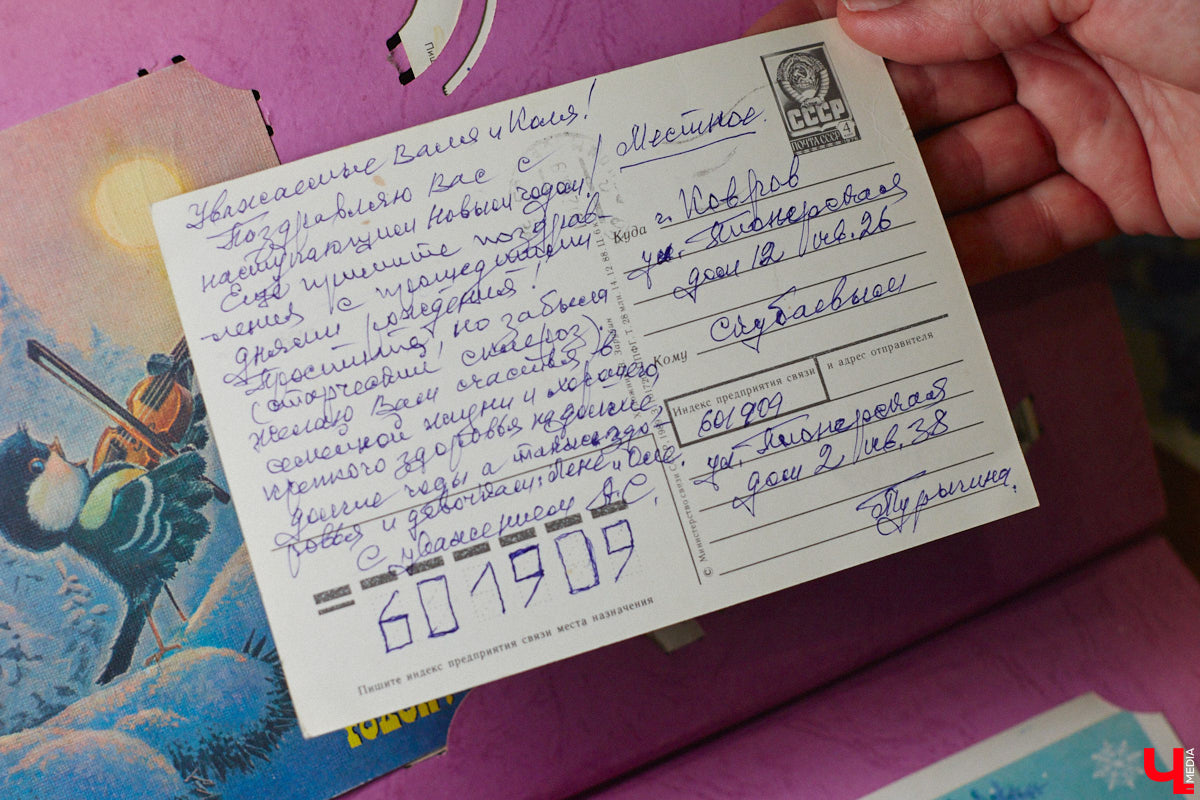 Уважаемые Валя и Коля!
Поздравляю Вас с
наступающим Новым годом!
Ещё примите поздрав-
ления с прошедшими
днями рождения!
Простите, но забыла
(старческий склероз).
Желаю Вам счастья в
семейной жизни и хорошего,
крепкого здоровья на долгие-
долгие годы а также здо-
ровья и девочкам: Лене и Оле.
С уважением А.С.
601909
Пишите индекс предприятия связи места назначения
Местное.
СССР
ПОЧТА СССР 4
Куда г. Ковров
ул. Пионерская
дом 12 кв. 26
Кому
Индекс предприятия связи и адрес отправителя
601909
ул. Пионерская
дом 2 кв. 38
Турыгина.
© Министерство связи
Ч MEDIA